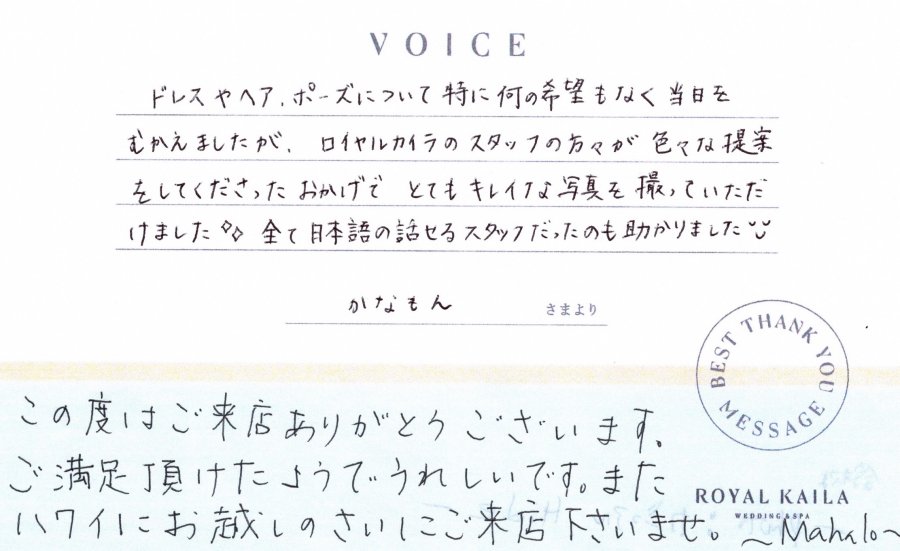 VOICE
ドレスやヘア、ポーズについて特に何の希望もなく当日を
むかえましたが、ロイヤルカイラのスタッフの方々が色々な提案
をしてくださったおかげでとてもキレイな写真を撮っていただ
けました 全て日本語の話せるスタッフだったのも助かりました
かなもん さまより
BEST THANK YOU MESSAGE
この度はご来店ありがとうございます。
ご満足頂けたようでうれしいです。また
ROYAL KAILA
WEDDING & SPA
ハワイにお越しのさいにご来店下さいませ。~Mahalo~